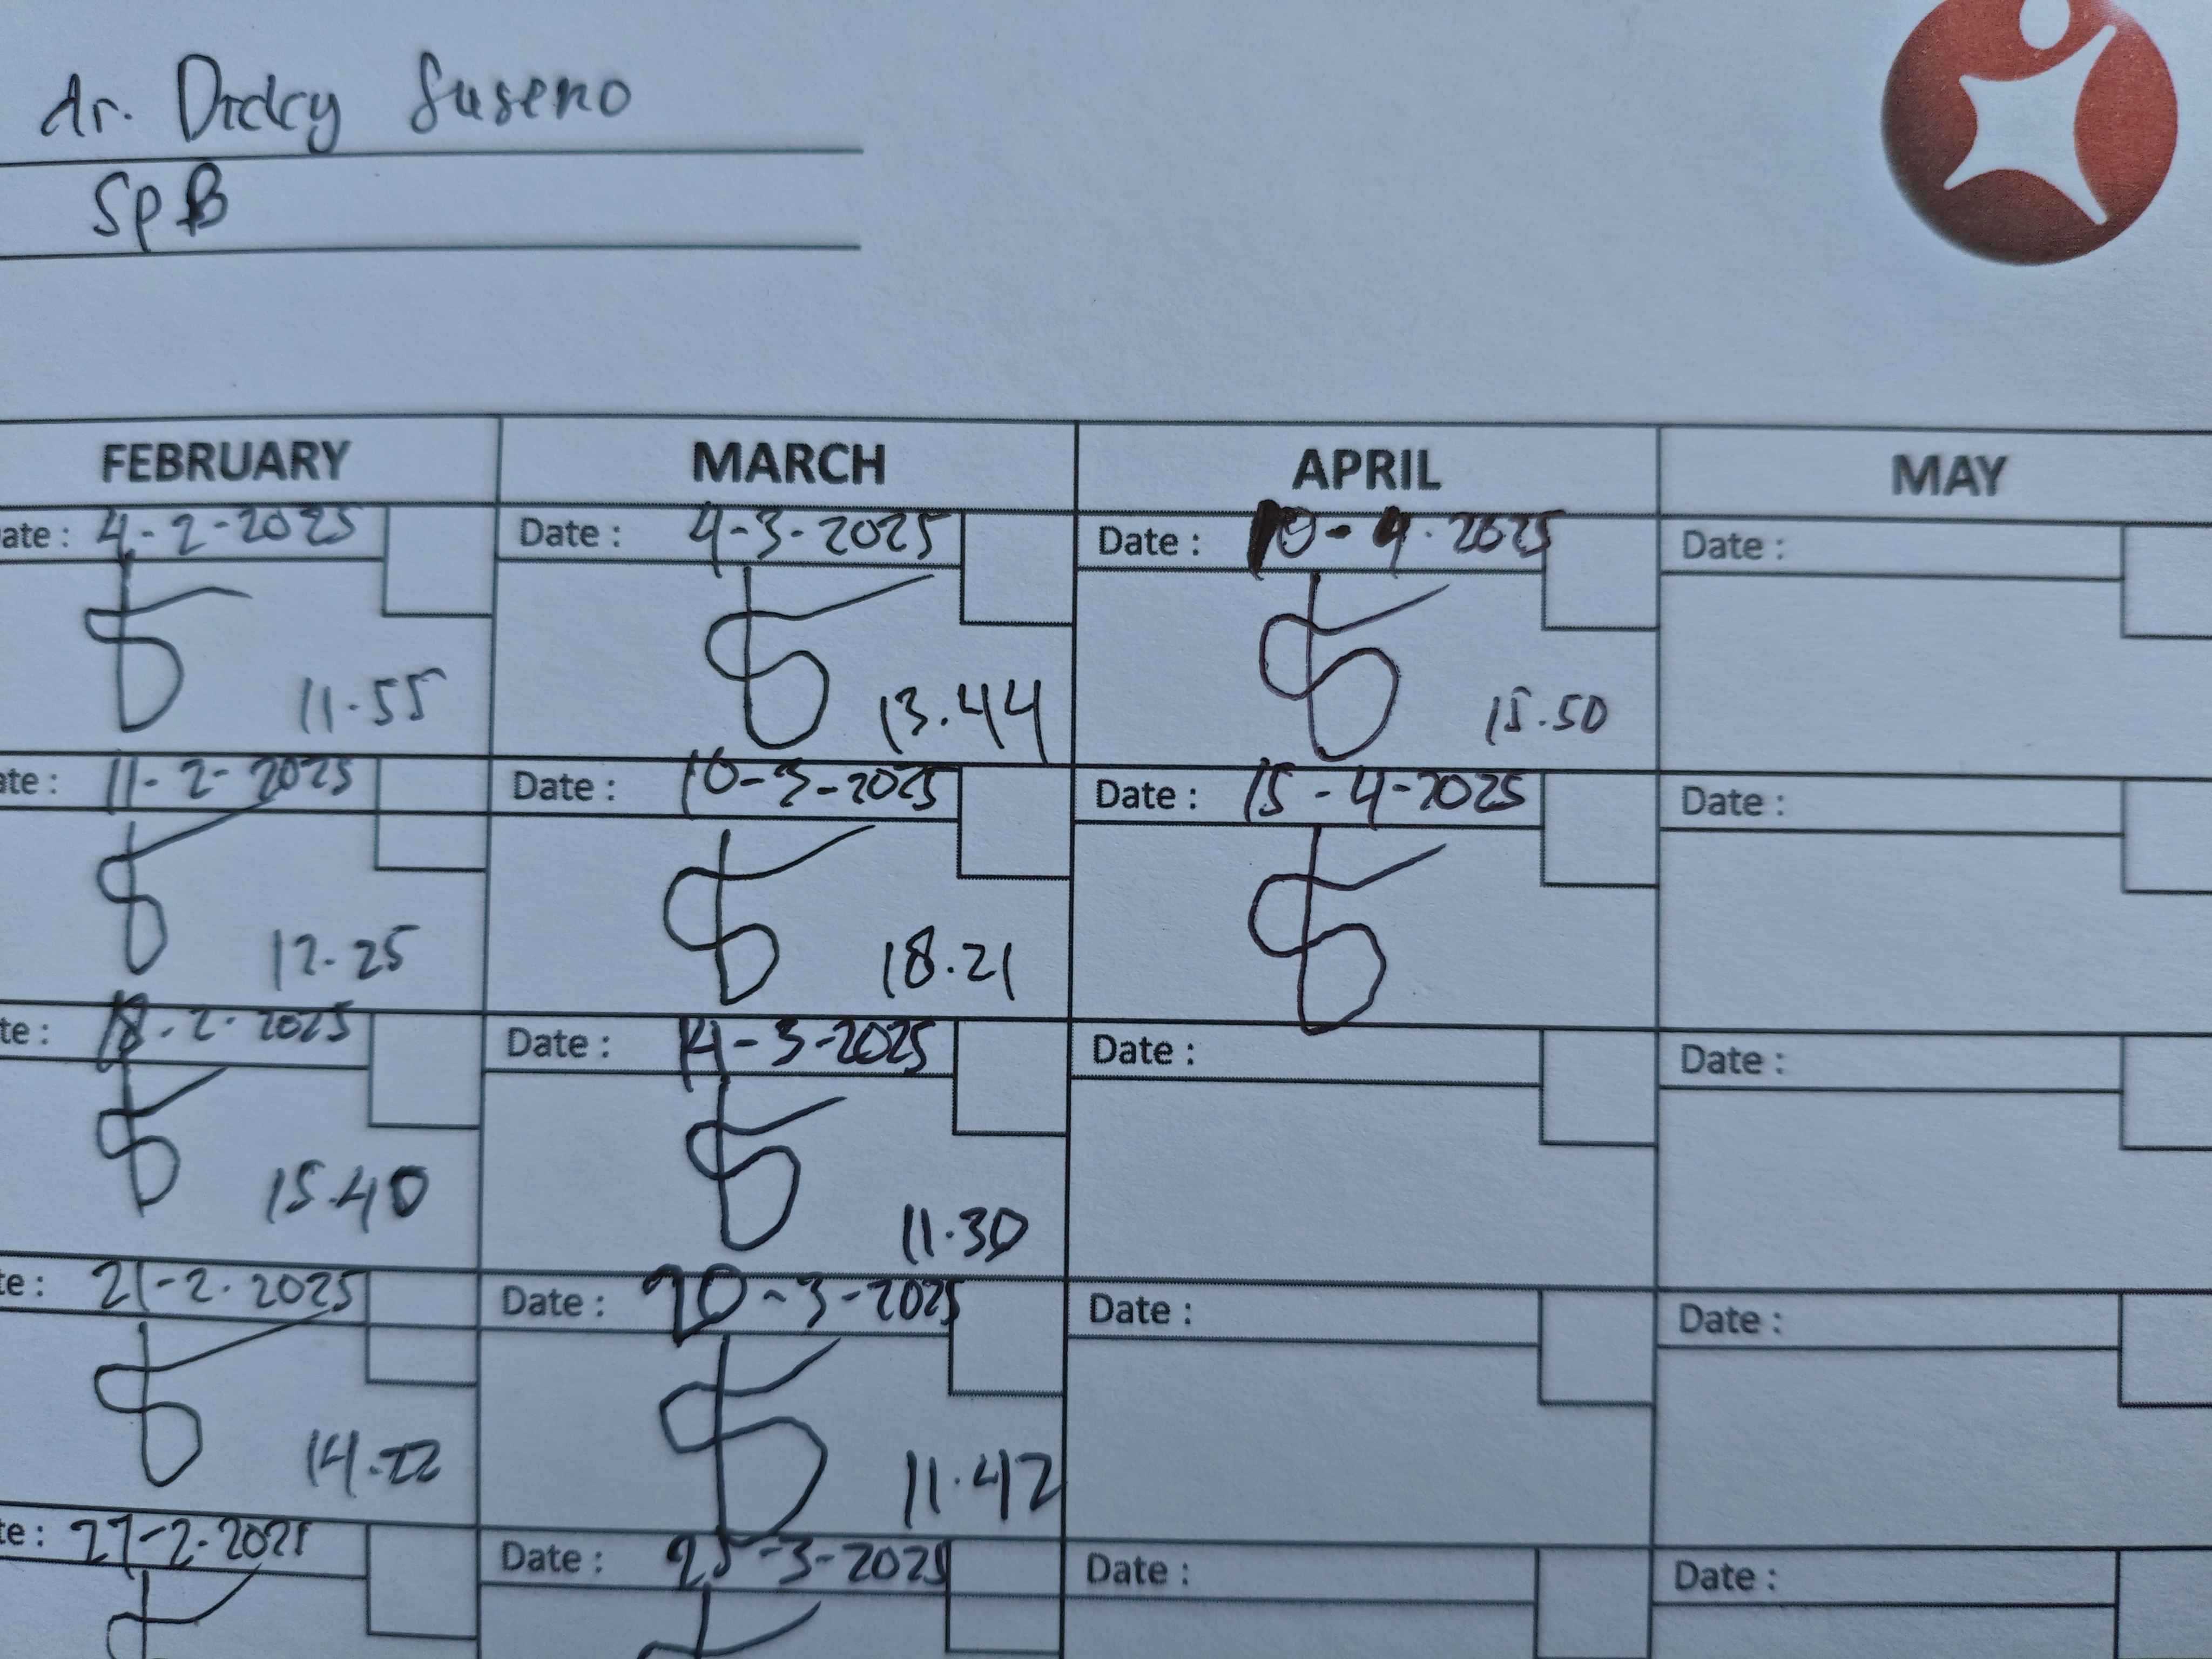 dr. Dicky Suseno
SpB
FEBRUARY MARCH APRIL MAY
ate : 4-2-2025 Date : 4-3-2025 Date : 10-4-2025 Date :
11.55 13.44 15.50
ate : 11-2-2025 Date : 10-3-2025 Date : 15-4-2025 Date :
12.25 18.21
te : 18-2-2025 Date : 14-3-2025 Date : Date :
15.40 11.30
te : 21-2-2025 Date : 20-3-2025 Date : Date :
14.22 11.42
te : 27-2-2025 Date : 25-3-2025 Date : Date :